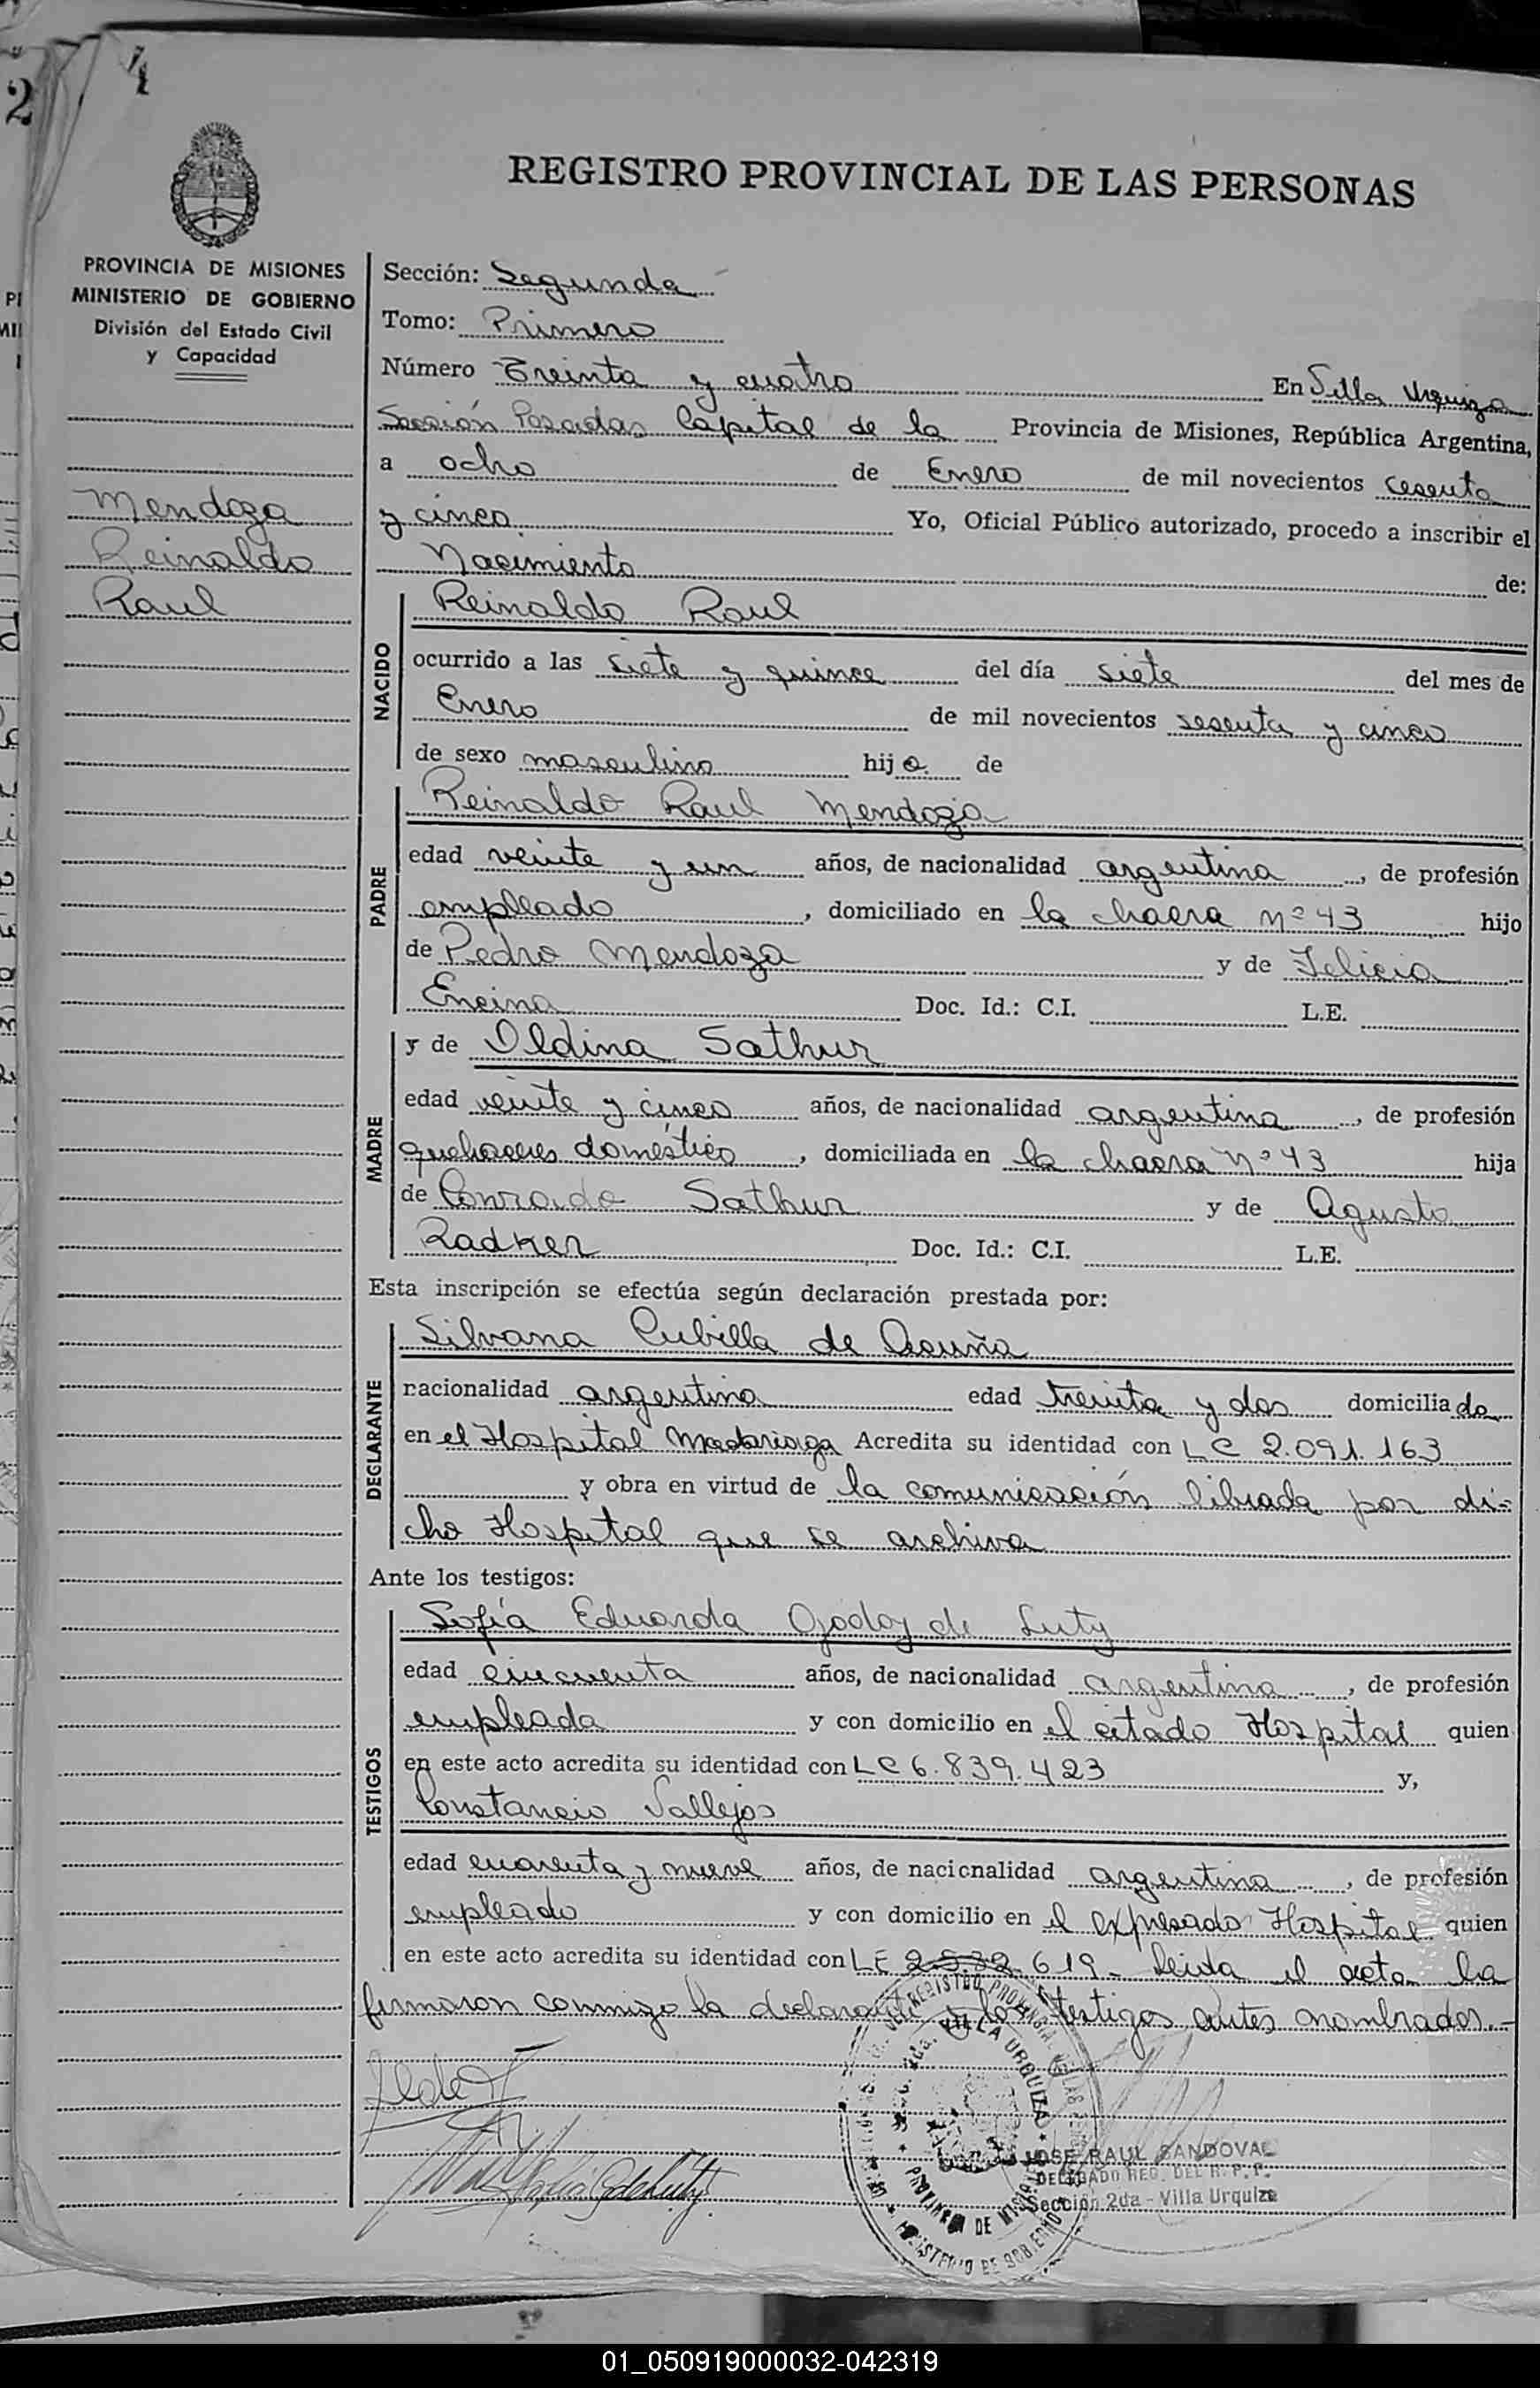 2
4
REGISTRO PROVINCIAL DE LAS PERSONAS
PROVINCIA DE MISIONES
MINISTERIO DE GOBIERNO
División del Estado Civil
y Capacidad
Mendoza
Reinaldo
Raul
Sección: Segunda
Tomo: Primero
Número Treinta y cuatro En Villa Urquiza
Sección Posadas Capital de la Provincia de Misiones, República Argentina,
a ocho de Enero de mil novecientos cesenta
y cinco Yo, Oficial Público autorizado, procedo a inscribir el
Nacimiento de:
NACIDO
Reinaldo Raul
ocurrido a las siete y quince del día siete del mes de
Enero de mil novecientos sesenta y cinco
de sexo masculino hijo de
PADRE
Reinaldo Raul Mendoza
edad veinte y un años, de nacionalidad argentina, de profesión
empleado, domiciliado en la chacra nº 43 hijo
de Pedro Mendoza y de Felicia
Encina Doc. Id.: C.I. L.E.
MADRE
y de Oldina Sathur
edad veinte y cinco años, de nacionalidad argentina, de profesión
quehaceres doméstico, domiciliada en la chacra nº 43 hija
de Conrado Sathur y de Agusta
Radker Doc. Id.: C.I. L.E.
Esta inscripción se efectúa según declaración prestada por:
DECLARANTE
Silvana Cubilla de Acuña
nacionalidad argentina edad treinta y dos domiciliada
en el Hospital Madariaga Acredita su identidad con LC 2.091.163
y obra en virtud de la comunicación librada por di-
cho Hospital que se archiva
Ante los testigos:
TESTIGOS
Sofía Eduarda Godoy de Luty
edad cincuenta años, de nacionalidad argentina, de profesión
empleada y con domicilio en el citado Hospital quien
en este acto acredita su identidad con LC 6.839.423 y,
Constancio Vallejos
edad cuarenta y nueve años, de nacionalidad argentina, de profesión
empleado y con domicilio en el expresado Hospital quien
en este acto acredita su identidad con LE 2.532.619- Leida el acta la
firmaron conmigo la declarante y los testigos antes nombrados.-
REGISTRO PROVINCIAL DE LAS
VILLA URQUIZA
PROVINCIA DE MISIONES
MINISTERIO DE GOBIERNO
JOSE RAUL SANDOVAL
DELEGADO REG. DEL R. P. P.
Sección 2da - Villa Urquiza
01_050919000032-042319